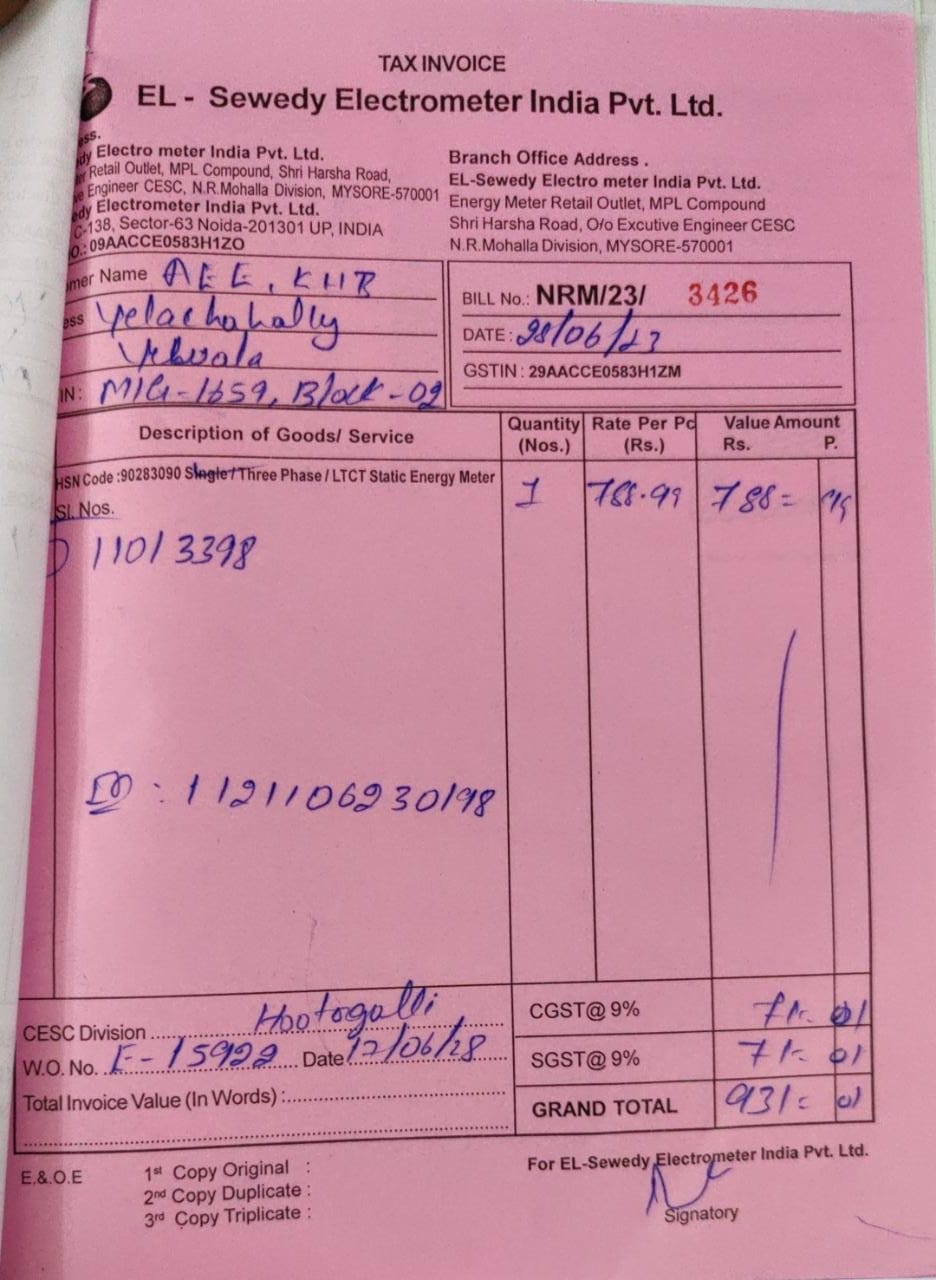 TAX INVOICE
EL - Sewedy Electrometer India Pvt. Ltd.
ess.
dy Electro meter India Pvt. Ltd.
Retail Outlet, MPL Compound, Shri Harsha Road,
ve Engineer CESC, N.R.Mohalla Division, MYSORE-570001
edy Electrometer India Pvt. Ltd.
C-138, Sector-63 Noida-201301 UP, INDIA
O.: 09AACCE0583H1ZO
Branch Office Address .
EL-Sewedy Electro meter India Pvt. Ltd.
Energy Meter Retail Outlet, MPL Compound
Shri Harsha Road, O/o Excutive Engineer CESC
N.R.Mohalla Division, MYSORE-570001
mer Name AEE, KHB
ess Yelachahally
Yelwala
IN: MIG-1659, Block-02
BILL No.: NRM/23/ 3426
DATE: 28/06/23
GSTIN : 29AACCE0583H1ZM
Description of Goods/ Service Quantity (Nos.) Rate Per Pc (Rs.) Value Amount Rs. P.
HSN Code :90283090 Single / Three Phase / LTCT Static Energy Meter 1 788.99 788= 99
Sl. Nos.
11013398
ID : 1121106230198
CESC Division Hootogalli
W.O. No. E-15922 Date 12/06/28
Total Invoice Value (In Words) :
CGST@ 9% 71= 01
SGST@ 9% 71= 01
GRAND TOTAL 931= 01
E.&.O.E
1st Copy Original :
2nd Copy Duplicate :
3rd Copy Triplicate :
For EL-Sewedy Electrometer India Pvt. Ltd.
Signatory